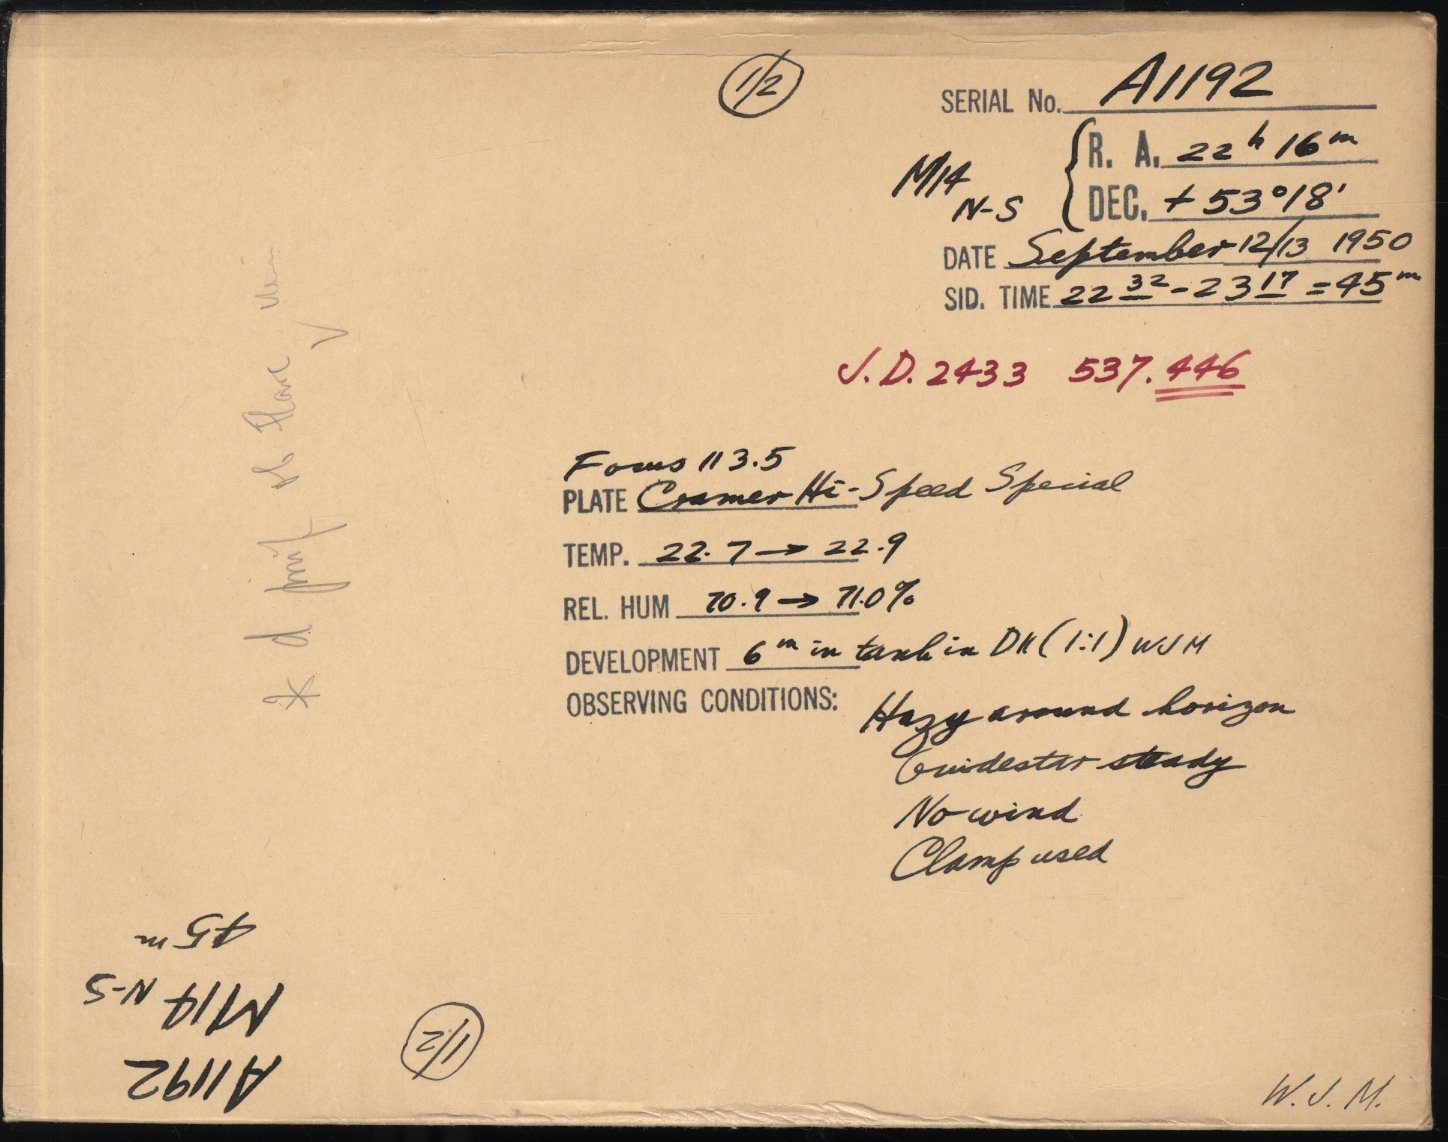 1/2
SERIAL No. A1192
M14
N-S
R. A. 22h 16m
DEC. +53°18'
DATE September 12/13 1950
SID. TIME 22 32 - 23 17 = 45m
J.D. 2433 537.446
Focus 113.5
PLATE Cramer Hi-Speed Special
TEMP. 22.7 → 22.9
REL. HUM 70.9 → 71.0%
DEVELOPMENT 6m in tank in D11 (1:1) WJM
OBSERVING CONDITIONS: Hazy around horizon
Guidestar steady
No wind
Clamp used
45m
M14 N-S
A1192
1/2
W.J.M.